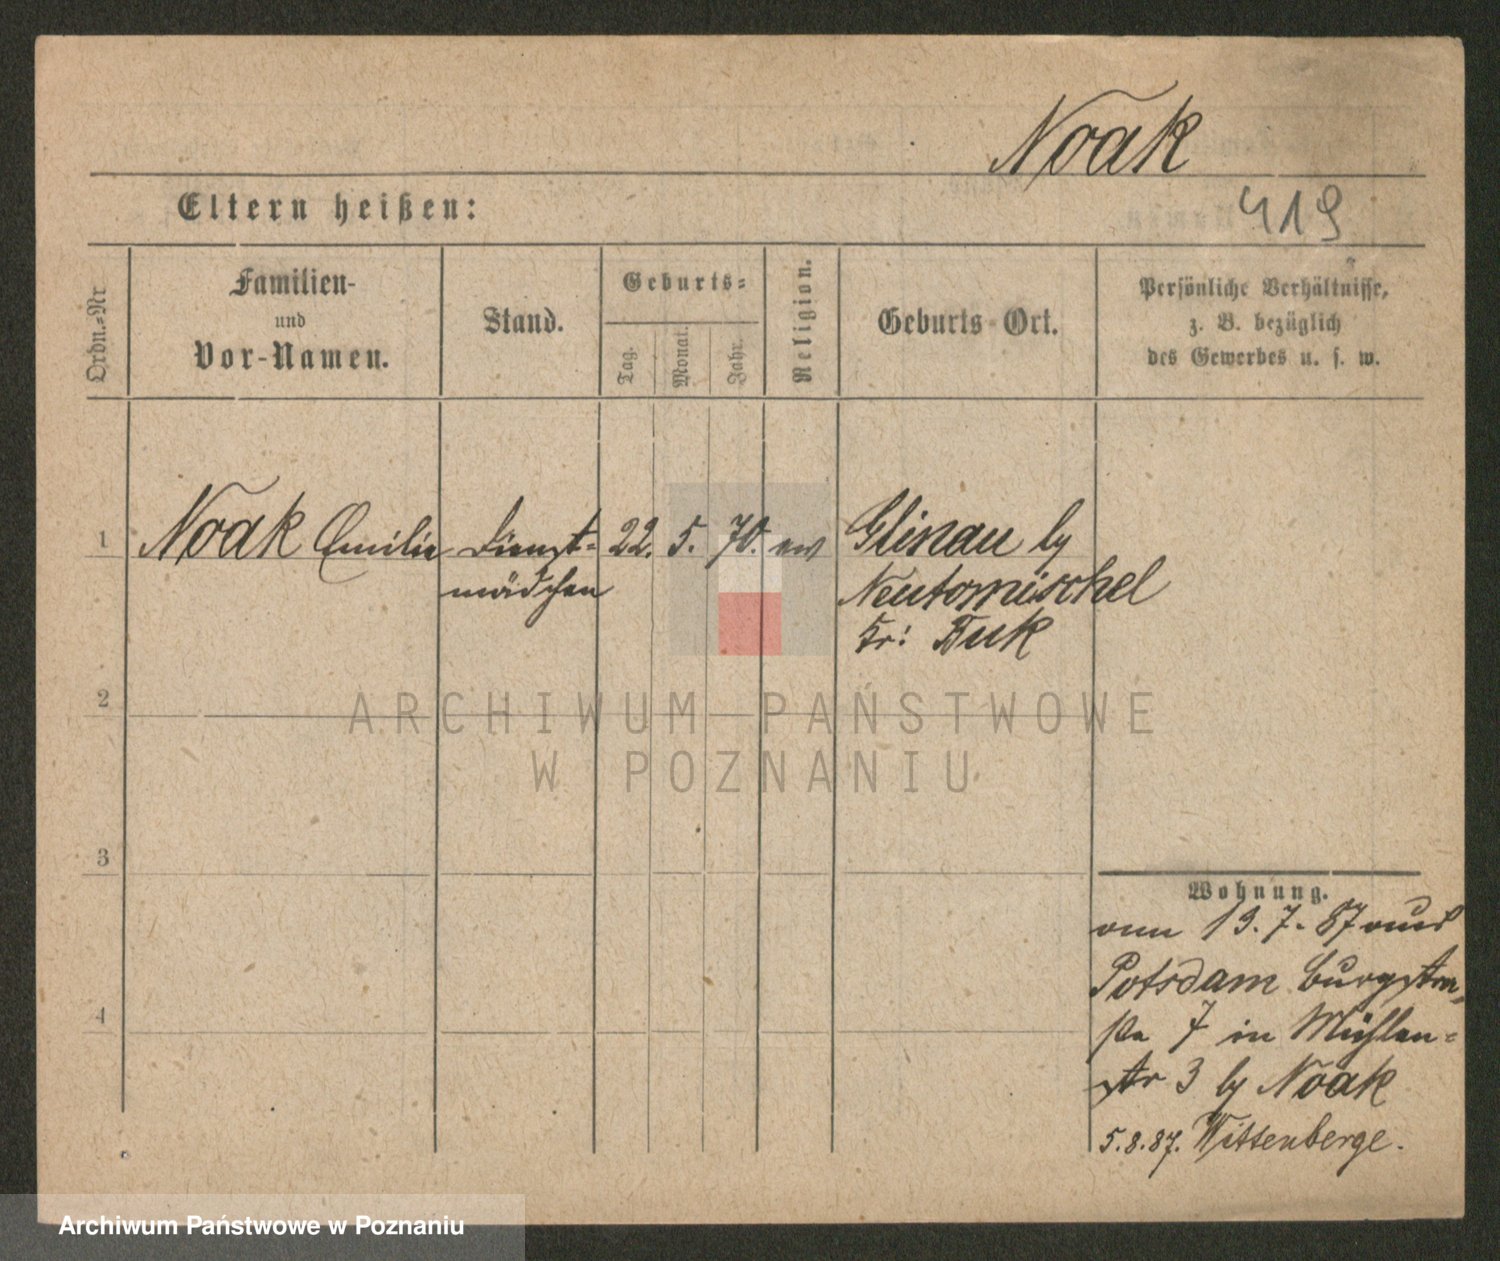 Noak
Eltern heißen:
419
Ordn.-Nr
Familien-
und
Vor-Namen.
Stand.
Geburts-
Tag.
Monat.
Jahr.
Religion.
Geburts-Ort.
Persönliche Verhältnisse,
z. B. bezüglich
des Gewerbes u. s. w.
1 Noak Emilie Dienst- 22. 5. 70. ev Glinau by
mädchen Neutomischel
Kr: Buk
2
ARCHIWUM PAŃSTWOWE
W POZNANIU
3
Wohnung.
vom 13. 7. 87 aus
Potsdam Burgstra
ße 7 in Mühlen-
str 3 by Noak
4
5.8.87. Wittenberge.
Archiwum Państwowe w Poznaniu